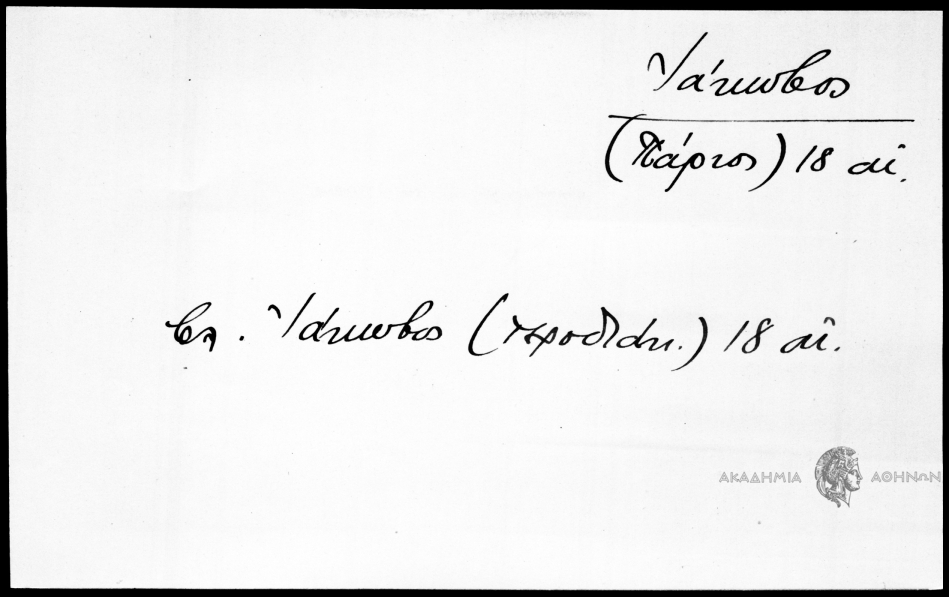 Ἰάκωβος
(Πάριος) 18 αἰ.
βλ. Ἰάκωβος (ἱεροδιάκ.) 18 αἰ.
ΑΚΑΔΗΜΙΑ ΑΘΗΝΩΝ